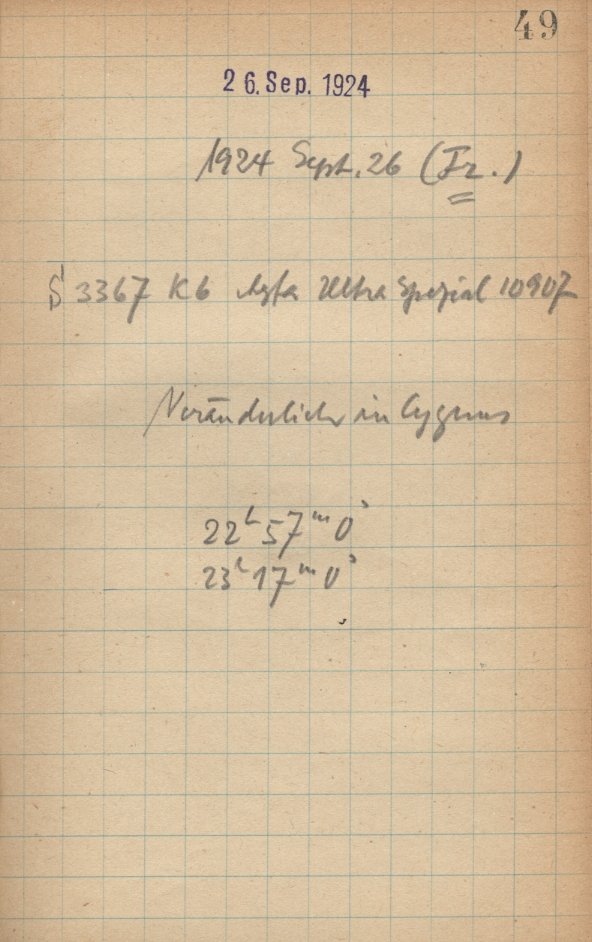 49
26. Sep. 1924
1924 Sept. 26 (Fr.)
S 3367 K6 Agfa Ultra Spezial 10907
Veränderliche in Cygnus
22ʰ 57ᵐ 0ˢ
23ʰ 17ᵐ 0ˢ